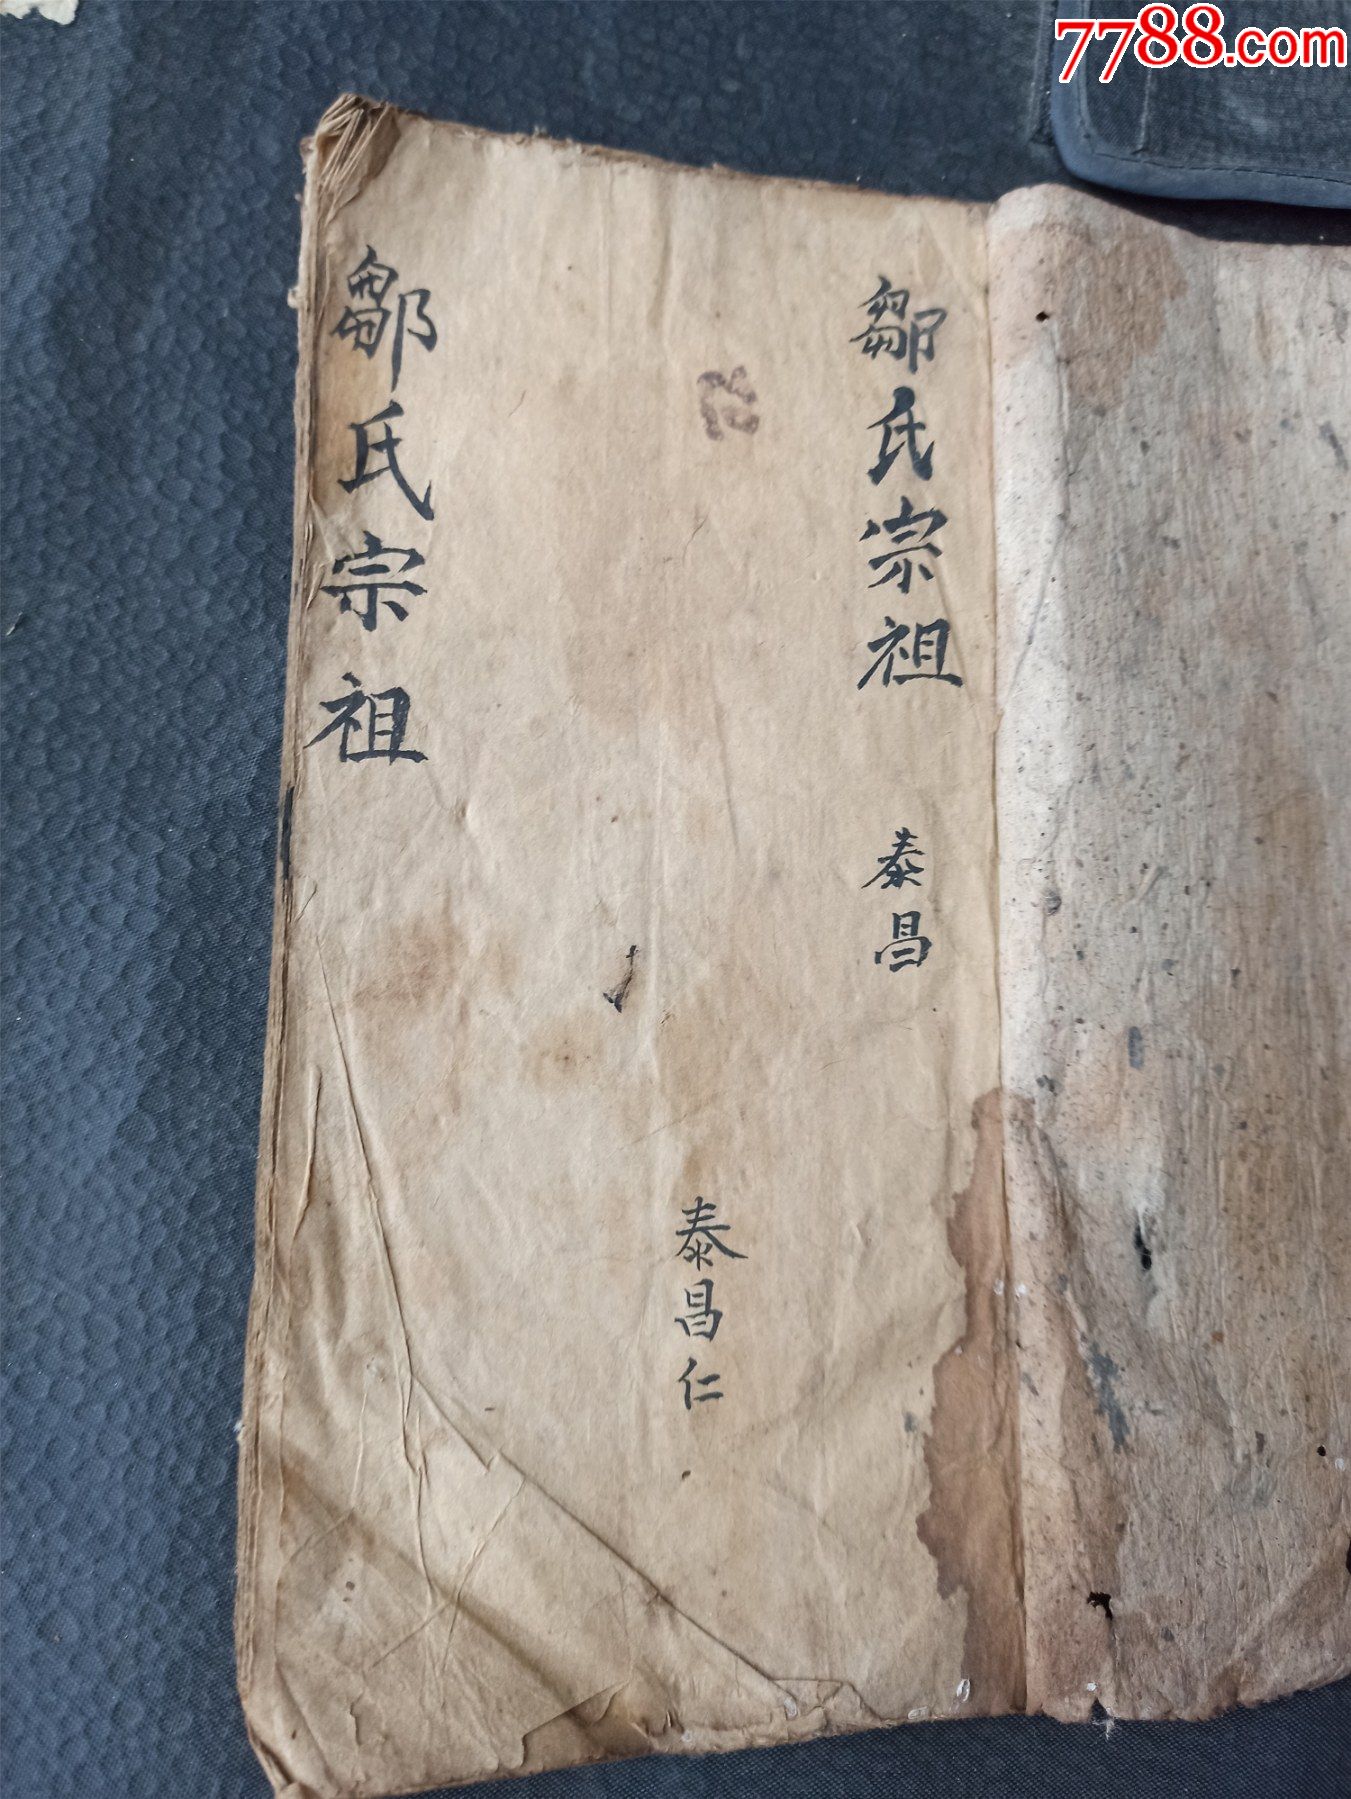 7788.com
鄒氏宗祖
泰昌
泰昌仁
鄒氏宗祖